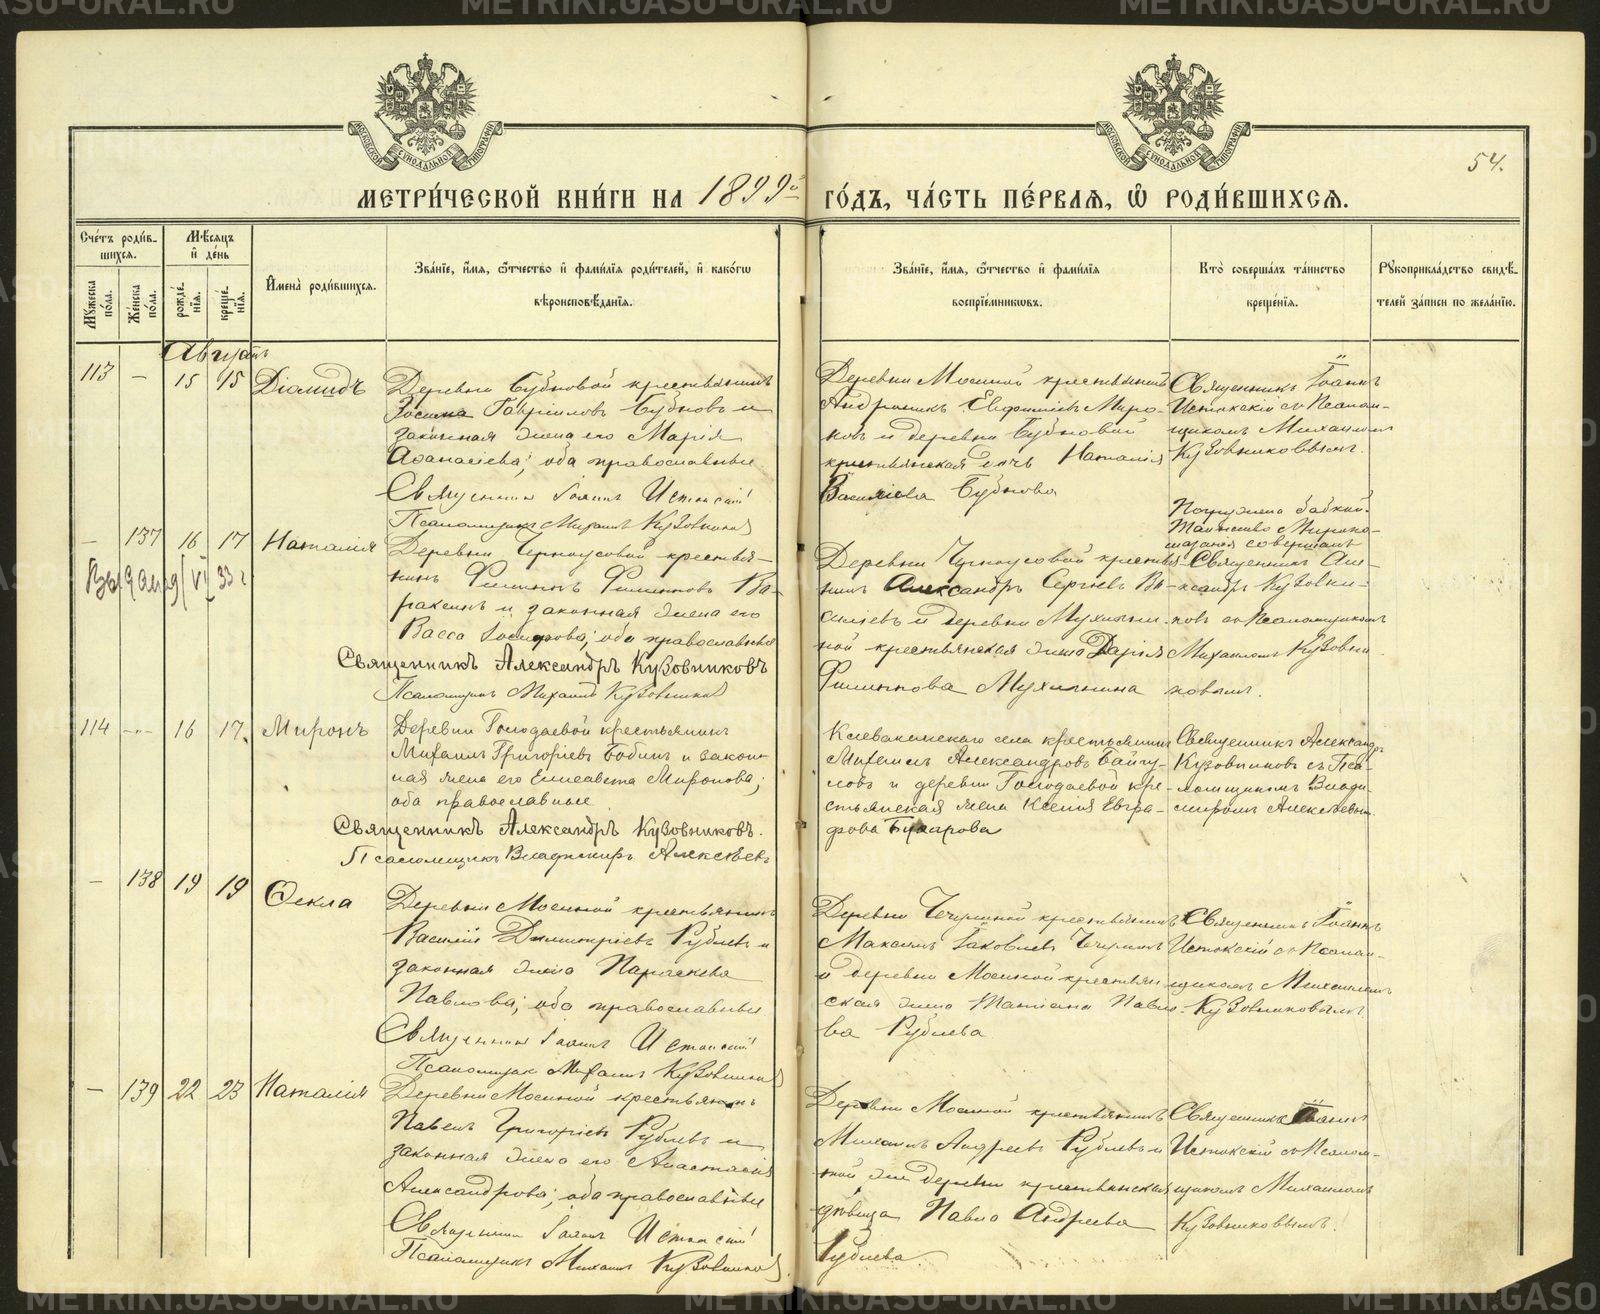 МЕТРИ́ЧЕСКОЙ КНИ́ГИ НА 1899й ГО́ДЪ, ЧА́СТЬ ПЕ́РВАЯ, Ѡ РОДИ́ВШИХСЯ.
54.
Сче́тъ роди́в-
шихся.
Мѣ́сяцъ
и҆ де́нь
Мꙋ́жеска по́ла.
Же́нска по́ла.
рожде́нїя.
креще́нїя.
И҆мена̀ роди́вшихся.
Зва́нїе, и҆́мя, ѻ҆́тчество и҆ фами́лїя роди́телей, и҆ како́гѡ
вѣроисповѣ́данїя.
Зва́нїе, и҆́мя, ѻ҆́тчество и҆ фами́лїя
воспрїе́мникѡвъ.
Кто̀ соверша́лъ та́инство
креще́нїя.
Рꙋкоприкла́дство свидѣ́-
телей за́писи по жела́нїю.
Августъ
113 – 15 15 Діомидъ
Деревни Бубновой крестьянинъ
Зосима Гавріиловъ Бубновъ и
законная жена его Марія
Аѳанасіева; оба православные
Священник Іоаннъ Истокскій
Псаломщикъ Михаилъ Кузовников
Деревни Мосиной крестьянинъ
Андроникъ Евфиміевъ Миро-
новъ и деревни Бубновой
крестьянская дочь Наталія
Васильева Бубнова
Священникъ Іоаннъ
Истокскій съ Псалом-
щикомъ Михаиломъ
Кузовниковымъ.
– 137 16 17 Наталія
Выдана VI 33 г
Деревни Черноусовой крестья-
нинъ Филиппъ Филипповъ Ва-
раксинъ и законная жена его
Васса ; оба православные
Священникъ Александръ Кузовниковъ
Псаломщикъ Михаилъ Кузовников
Деревни Черноусовой крестья-
нинъ Александръ Сергіевъ Ва-
сильевъ и деревни Мухлыни-
ной крестьянская жена Дарія
Филиппова Мухлынина
Погружено бабкой.
Таинство Миропо-
мазанія совершалъ
Священникъ Але-
ксандръ Кузовни-
ковъ съ Псаломщикомъ
Михаиломъ Кузовни
ковымъ.
114 – 16 17. Миронъ
Деревни Голодаевой крестьянинъ
Михаилъ Григоріевъ Бобинъ и закон-
ная жена его Елисавета Миронова;
оба православные
Священникъ Александръ Кузовниковъ.
Псаломщикъ Владиміръ Алексѣевъ
Клевакинскаго села крестьянинъ
Михаилъ Александровъ Байгу-
ловъ и деревни Голодаевой кре-
стьянская жена Ксенія Евгра-
фова Бухарова
Священникъ Александръ
Кузовниковъ съ Пса-
ломщикомъ Влади-
миромъ Алексѣевым
– 138 19 19 Ѳекла
Деревни Мосиной крестьянинъ
Василій Димитріевъ Рублевъ и
законная жена Параскева
Павлова; оба православные
Священник Іоаннъ Истокскій
Псаломщик Михаилъ Кузовников
Деревни Чечулиной крестьянинъ
Максимъ Іаковлевъ Чечулинъ
и деревни Мосиной крестьян
ская жена Татіана Павло-
ва Рублева
Священникъ Іоаннъ
Истокскій съ Псалом-
щикомъ Михаиломъ
Кузовниковымъ
– 139 22 23 Наталія
Деревни Мосиной крестьянинъ
Павелъ Григоріевъ Рублевъ и
законная жена его Анастасія
Александрова; оба православные
Священник Іоаннъ Истокскій
Псаломщикъ Михаилъ Кузовников
Деревни Мосиной крестьянинъ
Михаилъ Андреевъ Рублевъ и
той же деревни крестьянская
дѣвица Павла Андреева
Рублева
Священникъ Іоаннъ
Истокскій съ Псалом-
щикомъ Михаиломъ
Кузовниковымъ.
METRIKI.GASO-URAL.RU